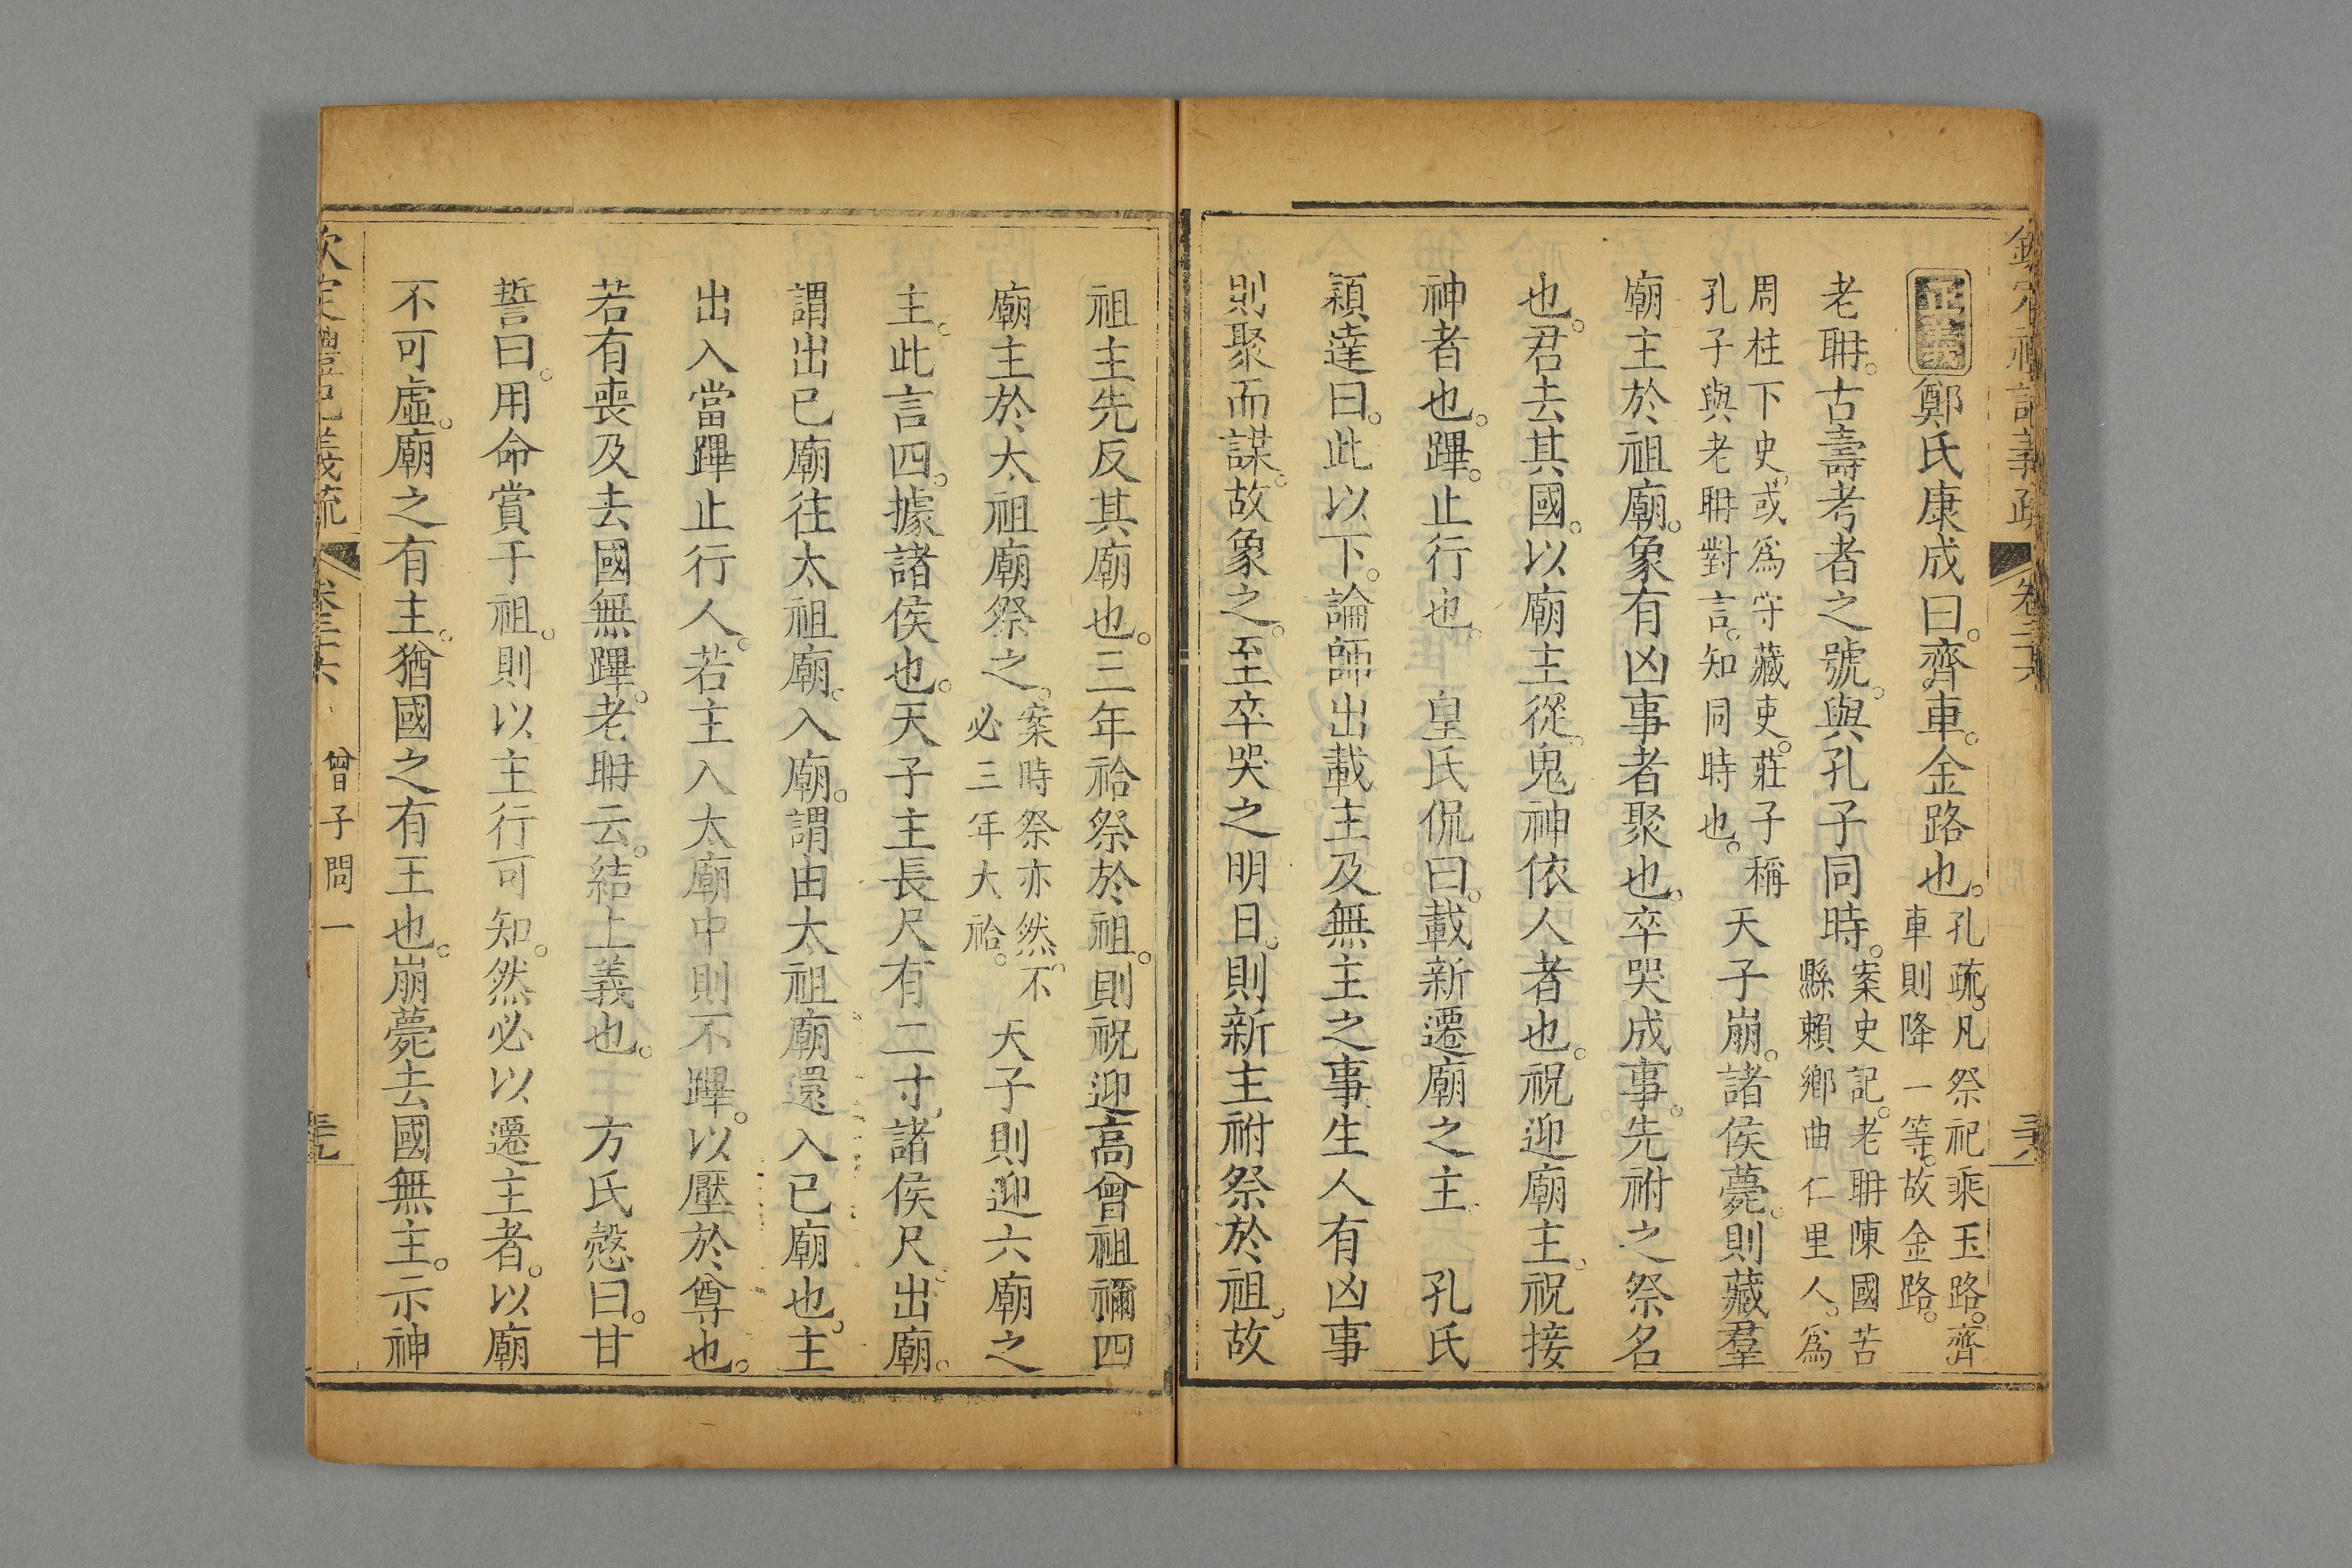 正義鄭氏康成曰。齊車。金路也。孔疏。凡祭祀乘玉路。齊車則降一等。故金路。
老聃。古壽考者之號。與孔子同時。案史記。老聃陳國苦縣賴鄉曲仁里人。爲
周柱下史。或爲守藏吏。莊子稱孔子與老聃對言。知同時也。天子崩。諸侯薨。則藏羣
廟主於祖廟。象有凶事者聚也。卒哭成事。先祔之祭名
也。君去其國。以廟主從。鬼神依人者也。祝迎廟主。祝接
神者也。蹕。止行也。 皇氏侃曰。載新遷廟之主 孔氏
穎達曰。此以下。論師出載主及無主之事生人有凶事
則聚而謀。故象之。至卒哭之明日。則新主祔祭於祖。故
祖主先反其廟也。三年祫祭於祖。則祝迎高曾祖禰四
廟主於太祖廟祭之。案時祭亦然。不必三年大祫。天子則迎六廟之
主。此言四。據諸侯也。天子主長尺有二寸。諸侯尺。出廟。
謂出已廟往太祖廟。入廟。謂由太祖廟還入已廟也。主
出入當蹕止行人。若主入太廟中則不蹕。以壓於尊也。
若有喪及去國無蹕。老聃云。結上義也。 方氏慤曰。甘
誓曰。用命賞于祖。則以主行可知。然必以遷主者。以廟
不可虛。廟之有主。猶國之有王也。崩薨去國無主。示神
欽定禮記義疏 卷二十六 曾子問一